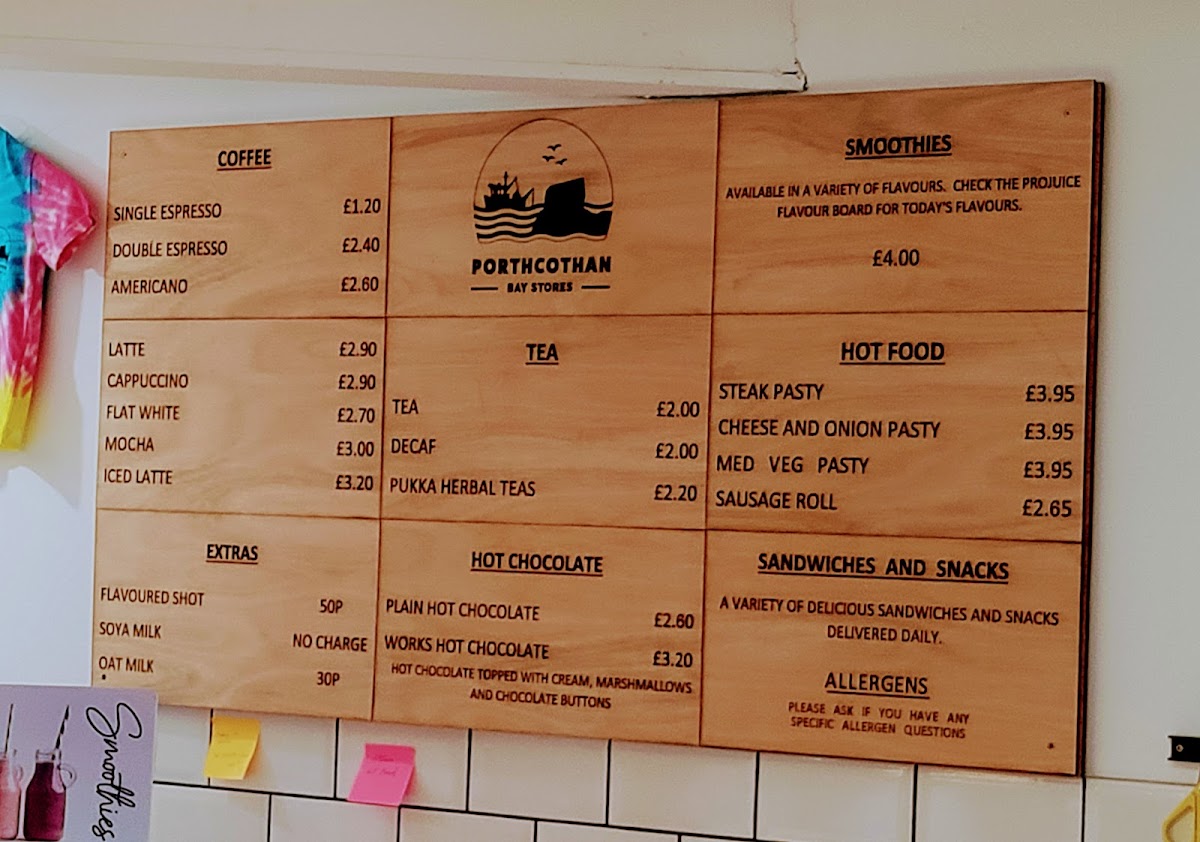 COFFEE
SINGLE ESPRESSO £1.20
DOUBLE ESPRESSO £2.40
AMERICANO £2.60
LATTE £2.90
CAPPUCCINO £2.90
FLAT WHITE £2.70
MOCHA £3.00
ICED LATTE £3.20
EXTRAS
FLAVOURED SHOT 50P
SOYA MILK NO CHARGE
OAT MILK 30P
PORTHCOTHAN
BAY STORES
TEA
TEA £2.00
DECAF £2.00
PUKKA HERBAL TEAS £2.20
HOT CHOCOLATE
PLAIN HOT CHOCOLATE £2.60
WORKS HOT CHOCOLATE £3.20
HOT CHOCOLATE TOPPED WITH CREAM, MARSHMALLOWS
AND CHOCOLATE BUTTONS
SMOOTHIES
AVAILABLE IN A VARIETY OF FLAVOURS. CHECK THE PROJUICE
FLAVOUR BOARD FOR TODAY'S FLAVOURS.
£4.00
HOT FOOD
STEAK PASTY £3.95
CHEESE AND ONION PASTY £3.95
MED VEG PASTY £3.95
SAUSAGE ROLL £2.65
SANDWICHES AND SNACKS
A VARIETY OF DELICIOUS SANDWICHES AND SNACKS
DELIVERED DAILY.
ALLERGENS
PLEASE ASK IF YOU HAVE ANY
SPECIFIC ALLERGEN QUESTIONS
Smoothies